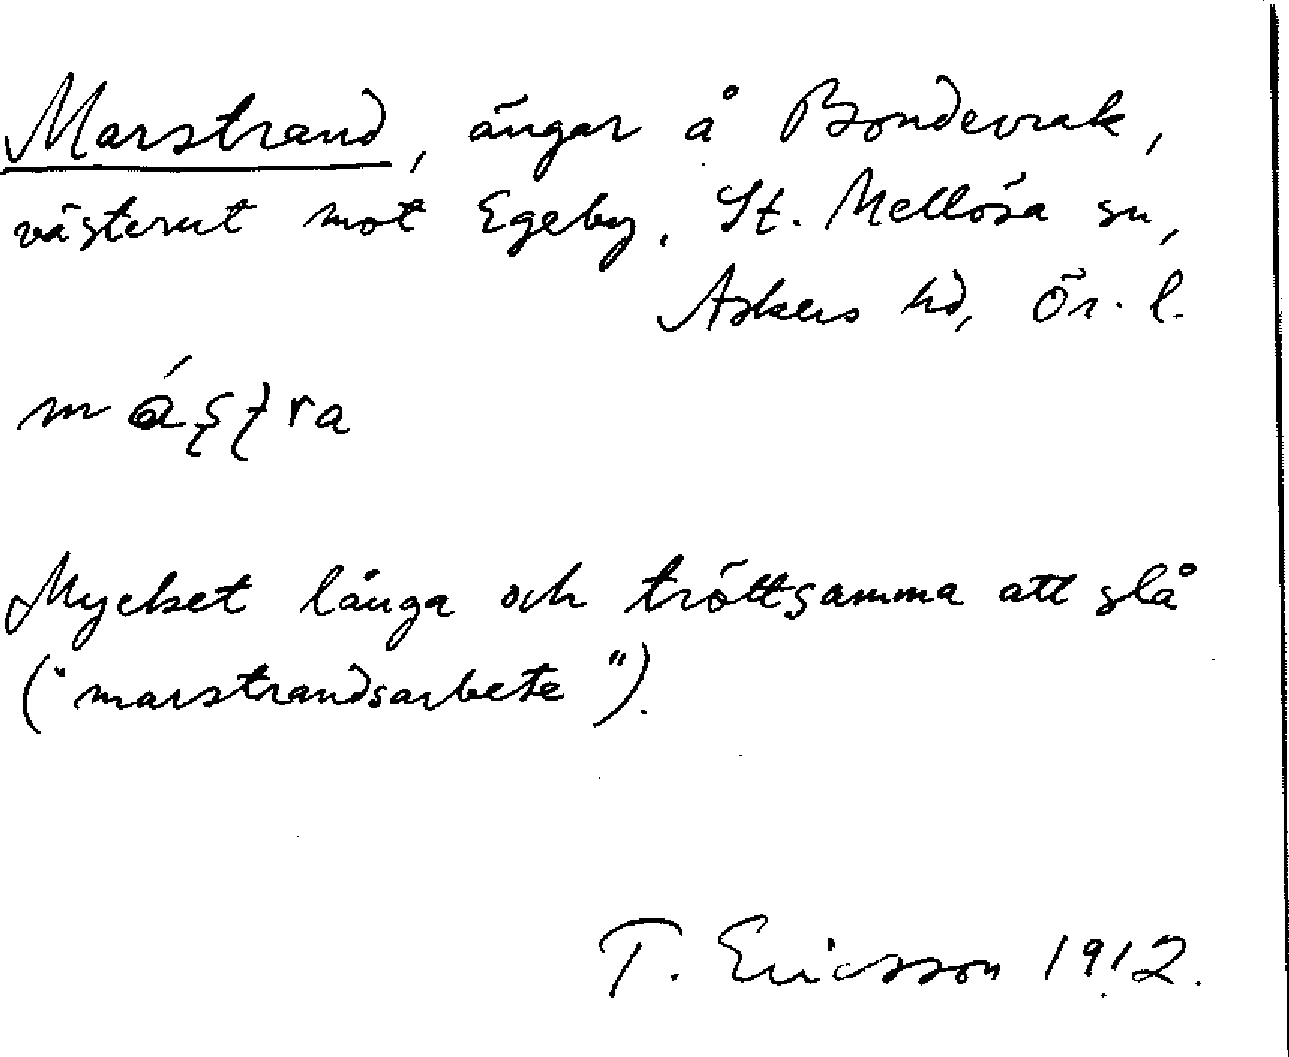 Marstrand, ängar å Bondevrak,
västerut mot Egeby. St. Mellösa sn,
Askers hd, Ör. l.
Mycket långa och tröttsamma att slå
("marstrandsarbete").
T. Ericsson 1912.